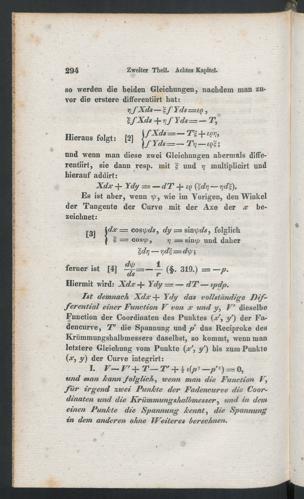 294 Zweiter Theil. Achtes Kapitel.
so werden die beiden Gleichungen, nachdem man zu-
vor die erstere differentiirt hat:
η∫Xds—ξ∫Yds=ιρ,
ξ∫Xds+η∫Yds=—T,
Hieraus folgt: [2] {∫Xds=—Tξ+ιρη,
∫Yds=—Tη—ιρξ;
und wenn man diese zwei Gleichungen abermals diffe-
rentiirt, sie dann resp. mit ξ und η multiplicirt und
hierauf addirt:
Xdx+Ydy=—dT+ιρ(ξdη—ηdξ).
Es ist aber, wenn ψ, wie im Vorigen, den Winkel
der Tangente der Curve mit der Axe der x be-
zeichnet:
[3] {dx=cosψds, dy=sinψds, folglich
ξ=cosψ, η=sinψ und daher
ξdη—ηdξ=dψ;
ferner ist [4] dψ/ds=—1/r (§. 319.)=—p.
Hiermit wird: Xdx+Ydy=—dT—ιpdp.
Ist demnach Xdx+Ydy das vollständige Dif-
ferential einer Function V von x und y, V' dieselbe
Function der Coordinaten des Punktes (x', y') der Fa-
dencurve, T' die Spannung und p' das Reciproke des
Krümmungshalbmessers daselbst, so kommt, wenn man
letztere Gleichung vom Punkte (x', y') bis zum Punkte
(x, y) der Curve integrirt:
I. V—V'+T—T'+½ι(p²—p'²)=0,
und man kann folglich, wenn man die Function V,
für irgend zwei Punkte der Fadencurve die Coor-
dinaten und die Krümmungshalbmesser, und in dem
einen Punkte die Spannung kennt, die Spannung
in dem anderen ohne Weiteres berechnen.